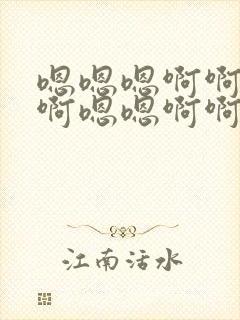 嗯嗯嗯啊啊
啊嗯嗯啊啊
江南活水